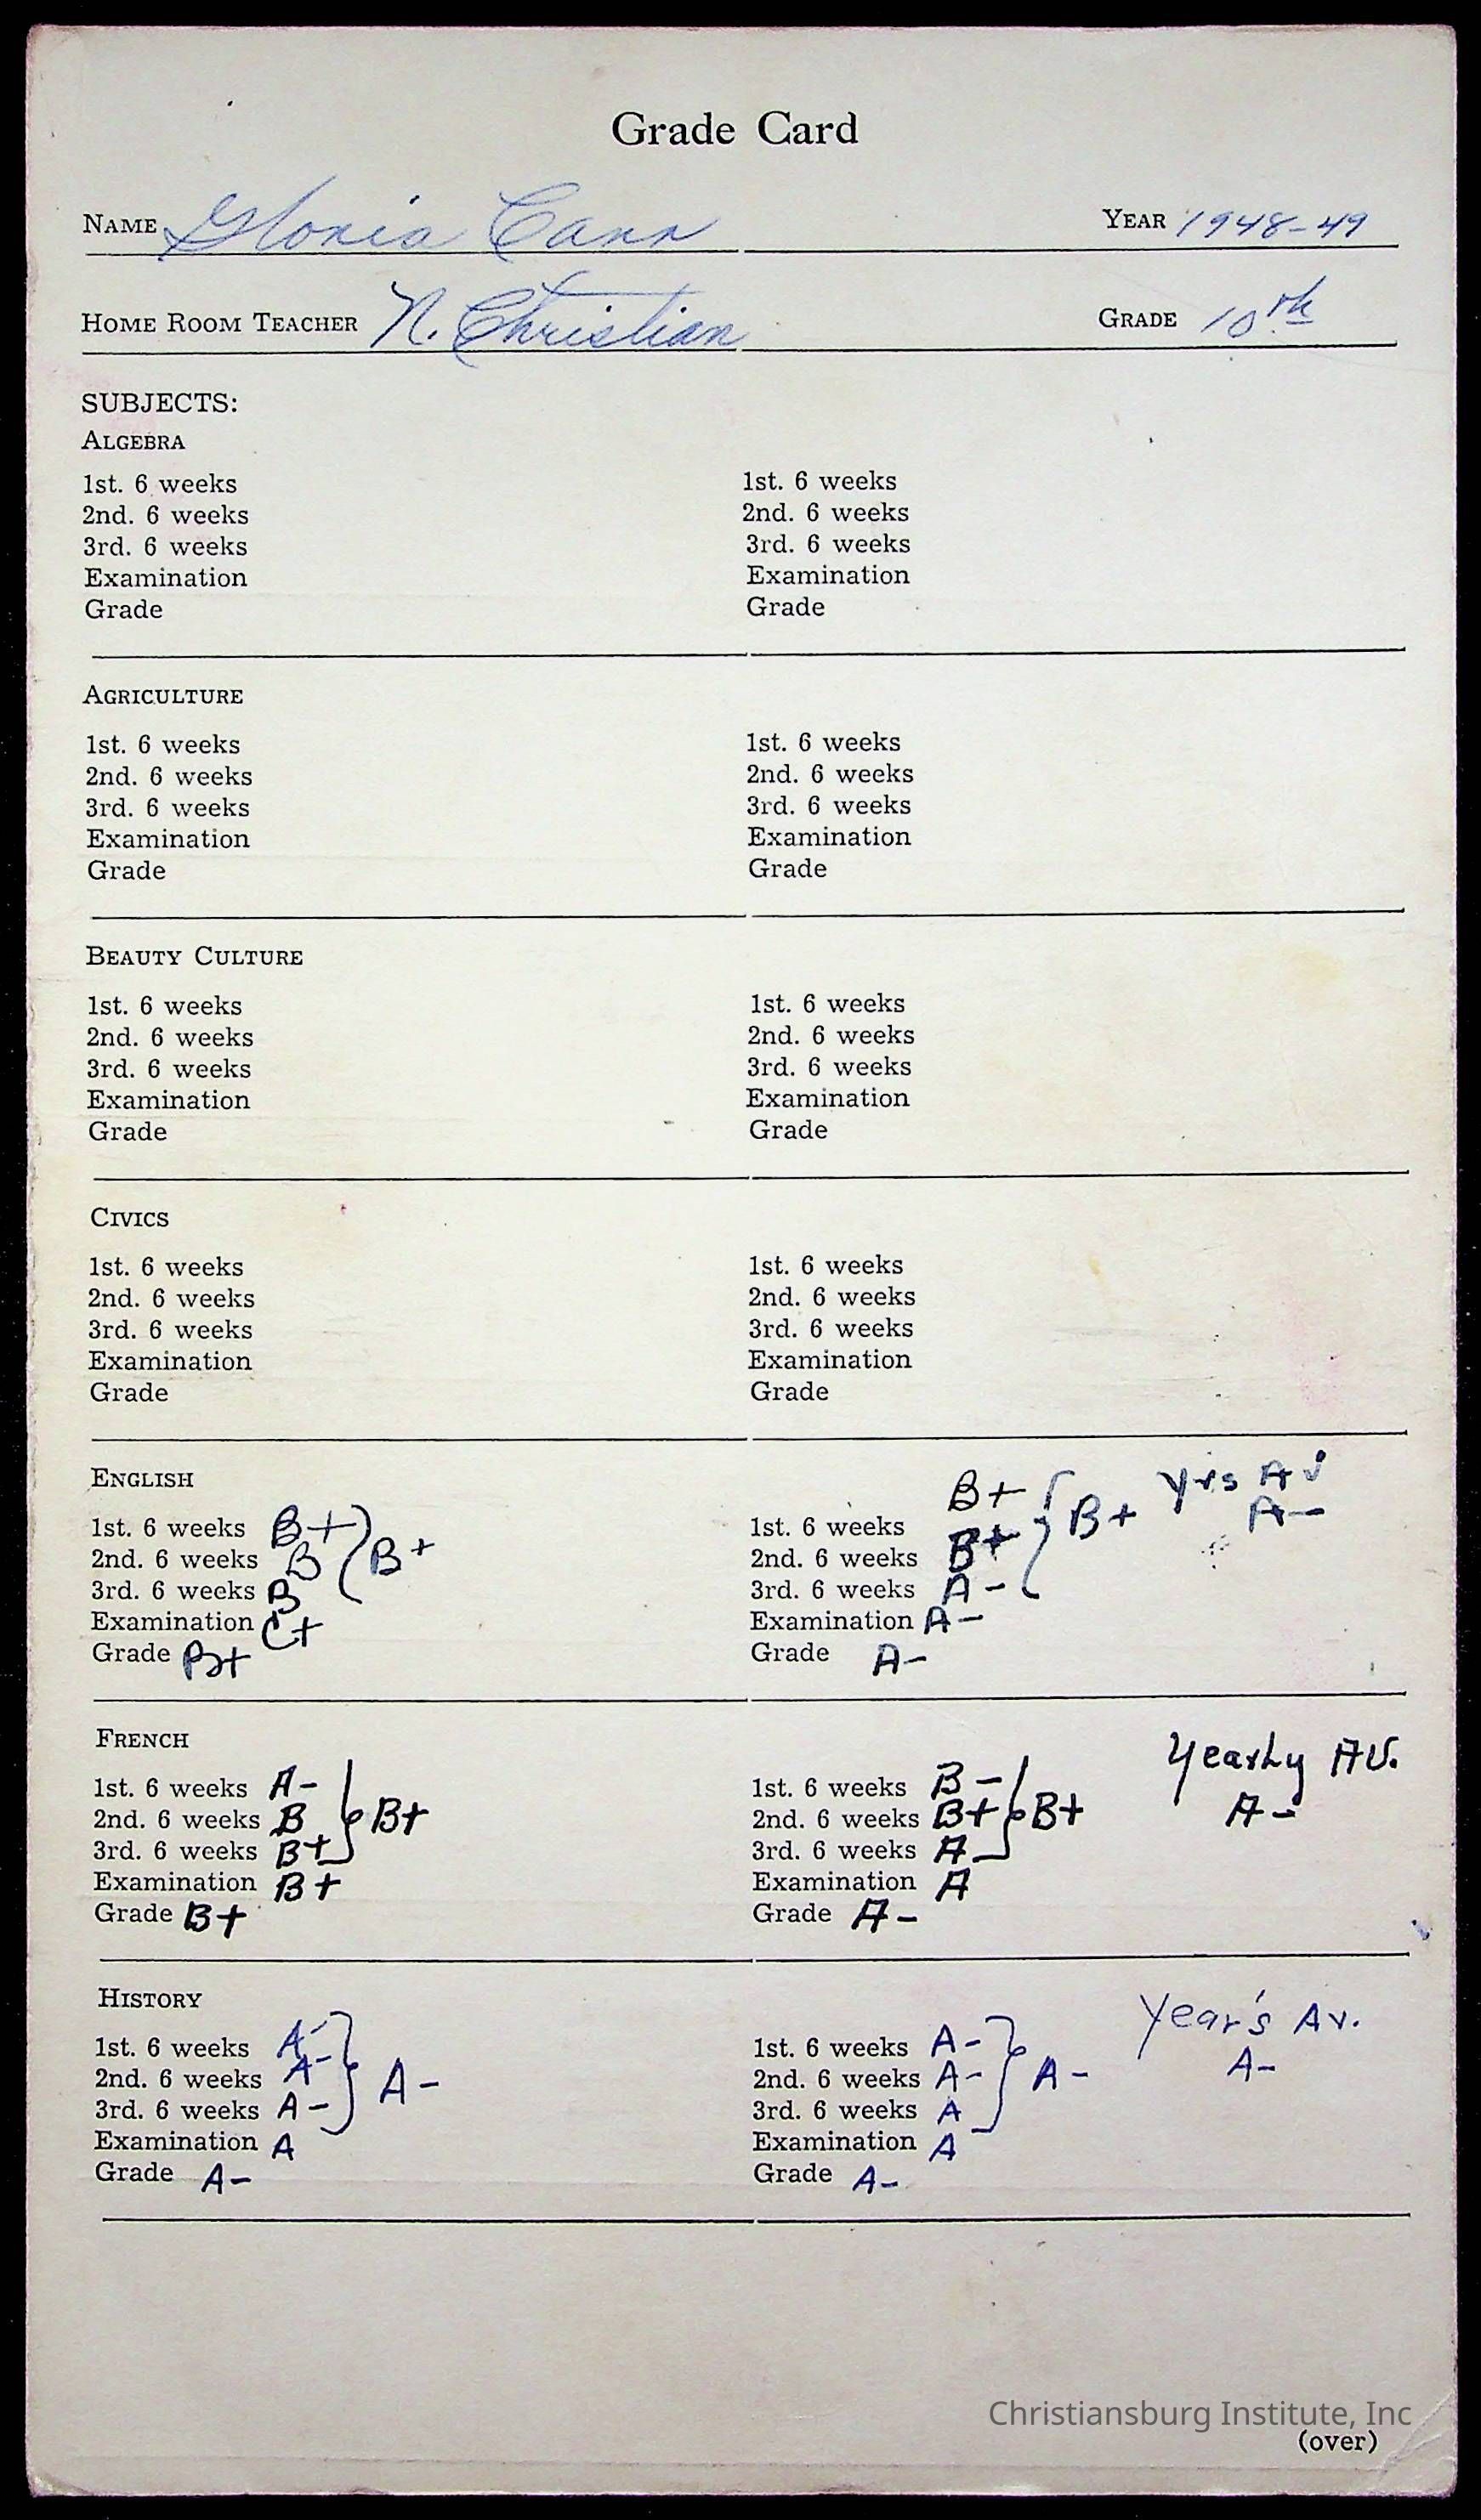 Grade Card
NAME Gloria Cann YEAR 1948-49
HOME ROOM TEACHER N. Christian GRADE 10th
SUBJECTS:
ALGEBRA
1st. 6 weeks 1st. 6 weeks
2nd. 6 weeks 2nd. 6 weeks
3rd. 6 weeks 3rd. 6 weeks
Examination Examination
Grade Grade
AGRICULTURE
1st. 6 weeks 1st. 6 weeks
2nd. 6 weeks 2nd. 6 weeks
3rd. 6 weeks 3rd. 6 weeks
Examination Examination
Grade Grade
BEAUTY CULTURE
1st. 6 weeks 1st. 6 weeks
2nd. 6 weeks 2nd. 6 weeks
3rd. 6 weeks 3rd. 6 weeks
Examination Examination
Grade Grade
CIVICS
1st. 6 weeks 1st. 6 weeks
2nd. 6 weeks 2nd. 6 weeks
3rd. 6 weeks 3rd. 6 weeks
Examination Examination
Grade Grade
ENGLISH B+ Yrs Av
1st. 6 weeks B+ 1st. 6 weeks B+ A-
2nd. 6 weeks B B+ 2nd. 6 weeks B+
3rd. 6 weeks B 3rd. 6 weeks A-
Examination C+ Examination A-
Grade B+ Grade A-
FRENCH Yearly AV.
1st. 6 weeks A- 1st. 6 weeks B-
2nd. 6 weeks B B+ 2nd. 6 weeks B+ B+ A-
3rd. 6 weeks B+ 3rd. 6 weeks A
Examination B+ Examination A
Grade B+ Grade A-
HISTORY Year's Av.
1st. 6 weeks A- 1st. 6 weeks A-
2nd. 6 weeks A- A- 2nd. 6 weeks A- A- A-
3rd. 6 weeks A- 3rd. 6 weeks A
Examination A Examination A
Grade A- Grade A-
Christiansburg Institute, Inc
(over)